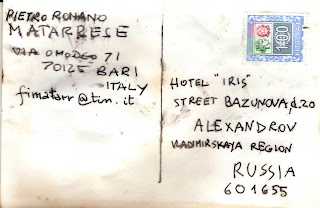 PIETRO ROMANO
MATARRESE
VIA OMODEO 71
70125 BARI
ITALY
fimatarr@tin.it
1400
HOTEL "IRIS"
STREET BAZUNOVA, d. 20
ALEXANDROV
VLADIMIRSKAYA REGION
RUSSIA
601655